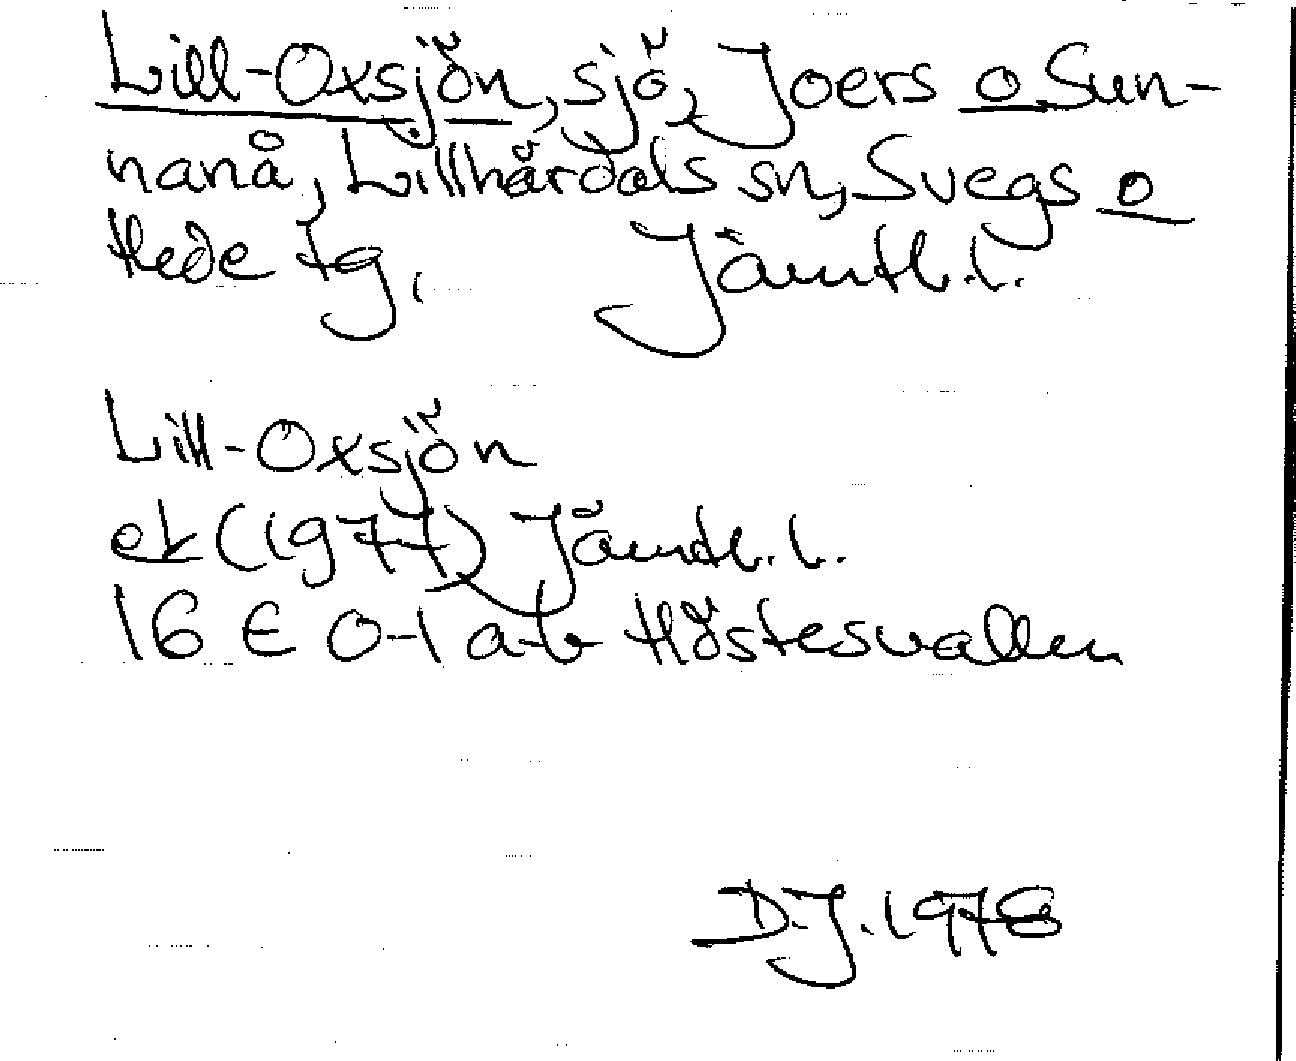 Lill-Oxsjön, sjö, Joers o Sun-
nanå, Lillhärdals sn, Svegs o
Hede tg, Jämtl. l.
Lill-Oxsjön
ek (1977) Jämtl. l.
16 E 0-1 a-b Höstesvallen
D.J. 1978